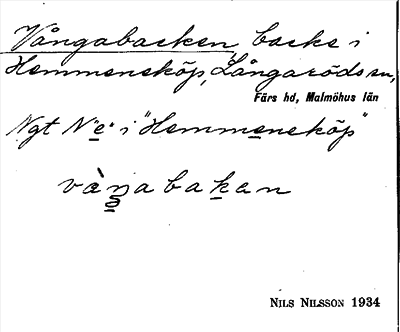 Vångabacken, backe i
Hemmeneköp, Långaröds sn,
Färs hd, Malmöhus län
Ngt N "e" i "Hemmeneköp"
vàŋabakan
NILS NILSSON 1934